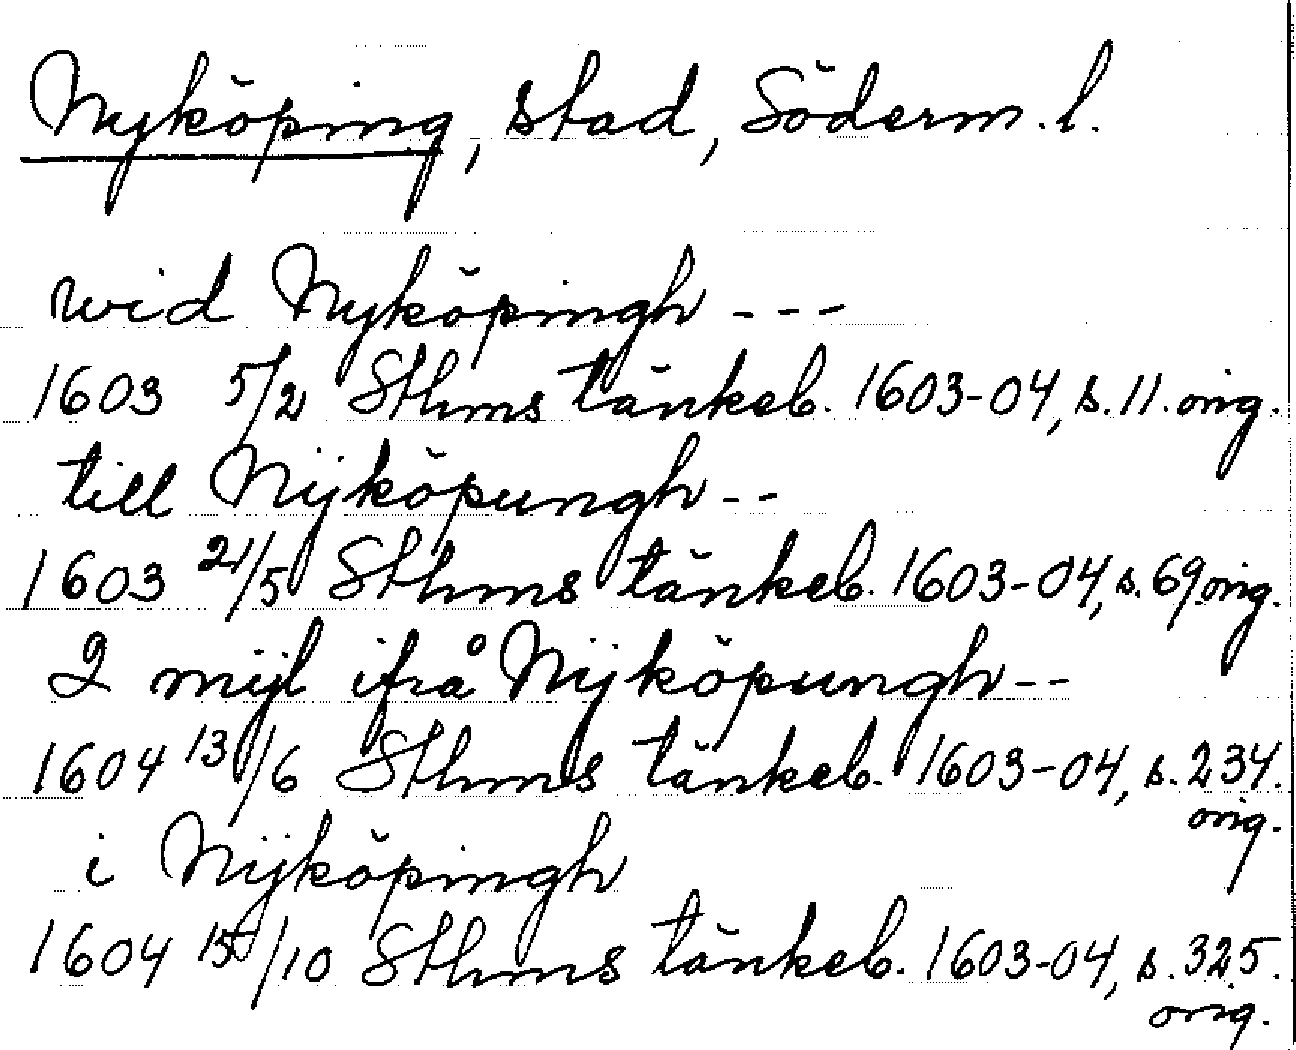 Nyköping, stad, Söderm. l.
wid Nyköpingh ---
1603 5/2 Sthms tänkeb. 1603-04, s. 11. orig.
till Nijköpungh --
1603 21/5 Sthms tänkeb. 1603-04, s. 69 orig.
2 mijl ifrå Nijköpungh --
1604 13/6 Sthms tänkeb. 1603-04, s. 234.
orig.
i Nijköpingh
1604 15/10 Sthms tänkeb. 1603-04, s. 325.
orig.